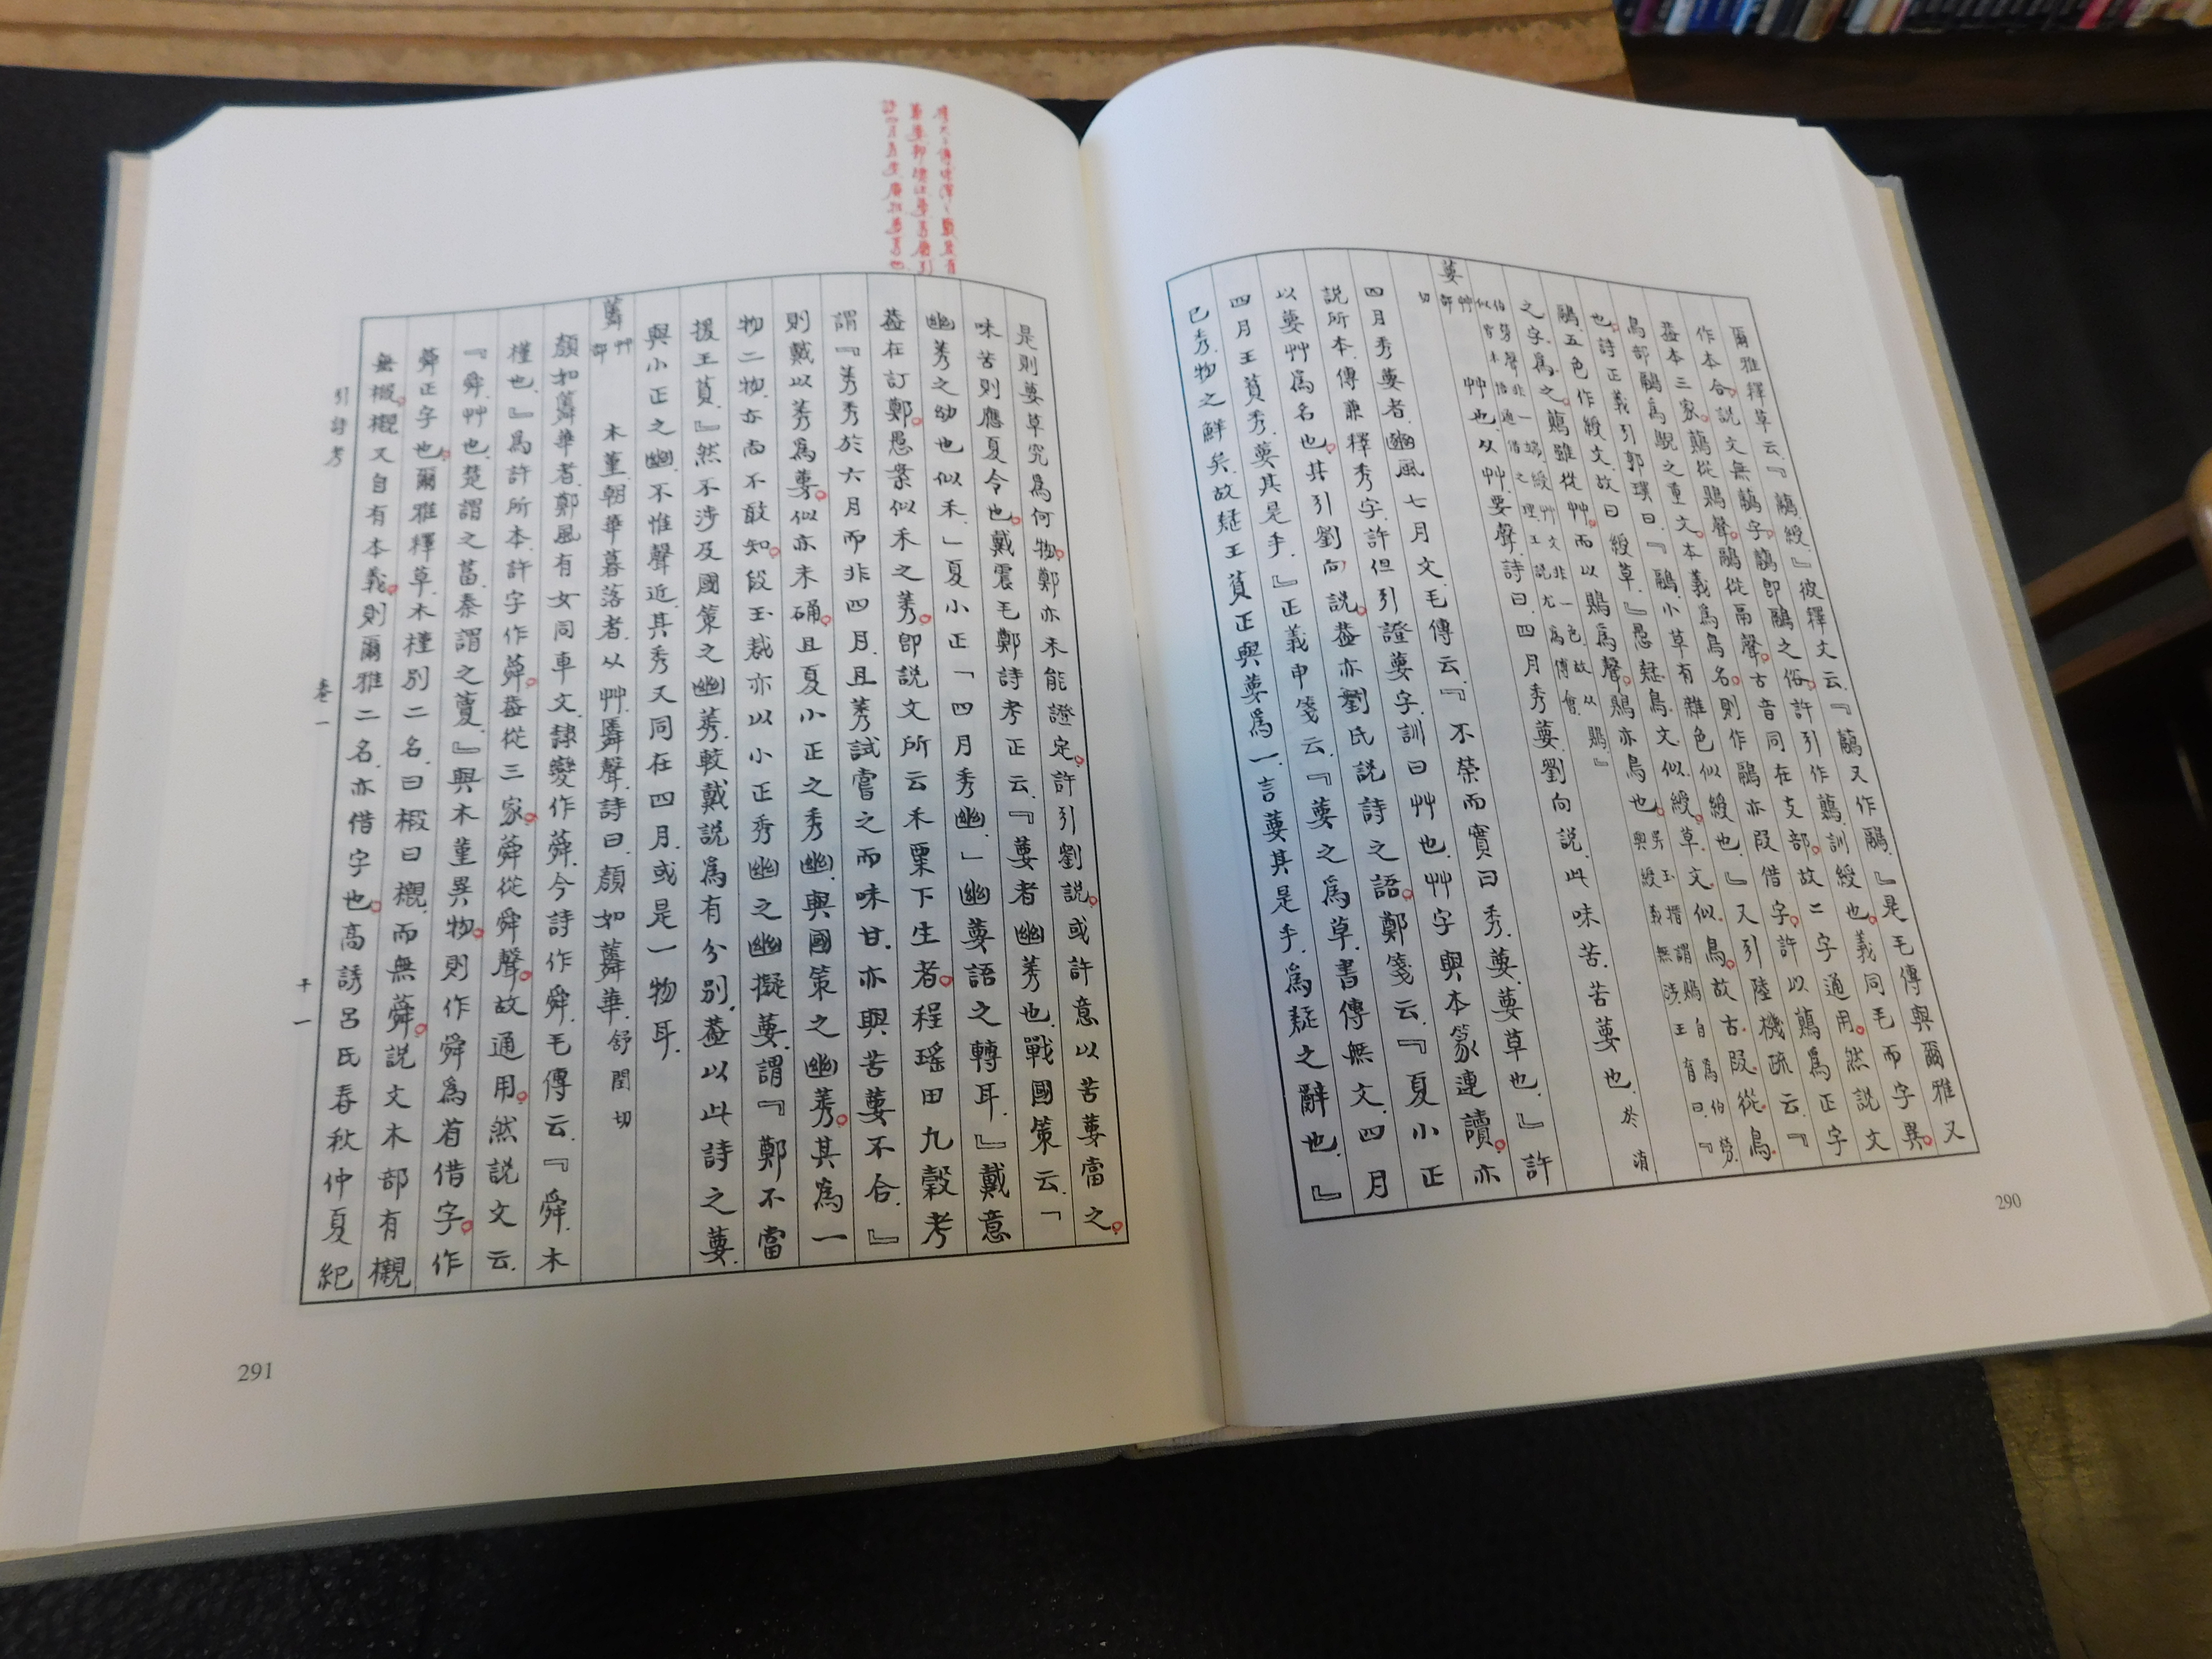 爾雅釋草云『虉綬』彼釋文云『虉又作鷊』是毛傳與爾雅又
作本合說文無虉字虉即鷊之俗許引作虉訓綬也義同毛而字異
鳥部鷊為鶃之重文本義為鳥名則作鷊亦叚借字許以虉為正字
也詩正義引郭璞曰『鷊小草有雜色似綬也』又引陸機疏云『
鷊五色作綬文故曰綬草』愚疑鳥文似綬草文似鳥故古叚從鳥
葽艸部 艸也从艸要聲詩曰四月秀葽劉向說此味苦苦葽也於消
切
四月秀葽者豳風七月文毛傳云『不榮而實曰秀葽葽草也』許
說所本傳兼釋秀字許但引證葽字訓曰艸也艸字與本篆連讀亦
以葽艸為名也其引劉向說葢亦劉氏說詩之語鄭箋云『夏小正
四月王萯秀葽其是乎』正義申箋云『葽之為草書傳無文四月
已秀物之鮮矣故疑王萯正與葽為一言葽其是乎為疑之辭也』
290
是則葽草究為何物鄭亦未能證定許引劉說或許意以苦葽當之
味苦則應夏令也戴震毛鄭詩考正云『葽者幽莠也戰國策云「
幽莠之幼也似禾」夏小正「四月秀幽」幽葽語之轉耳』戴意
葢在訂鄭愚案似禾之莠即說文所云禾粟下生者程瑤田九穀考
謂『莠秀於六月而非四月且莠試嘗之而味甘亦與苦葽不合』
則戴以莠為葽似亦未确且夏小正之秀幽與國策之幽莠其為一
物二物亦尚不敢知段玉裁亦以小正秀幽之幽擬葽謂『鄭不當
援王萯』然不涉及國策之幽莠較戴說為有分別葢以此詩之葽
與小正之幽不惟聲近其秀又同在四月或是一物耳
蕣艸部 木堇朝華暮落者从艸舜聲詩曰顏如蕣華舒閏切
顏如蕣華者鄭風有女同車文隸變作蕣今詩作舜毛傳云『舜木
槿也』為許所本許字作蕣葢從三家蕣從舜聲故通用然說文云
『舜艸也楚謂之葍秦謂之藑』與木堇異物則作舜為省借字作
蕣正字也爾雅釋草木槿別二名曰椴曰櫬而無蕣說文木部有櫬
無椴櫬又自有本義則爾雅二名亦借字也高誘呂氏春秋仲夏紀
引詩考 卷一
291